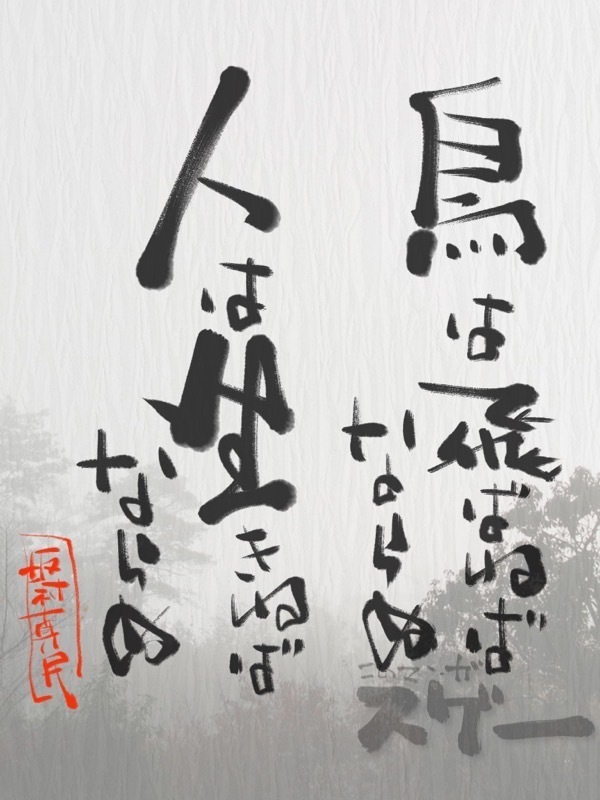 鳥は飛ばねば
ならぬ
人は生きねば
ならぬ
坂村真民
このマンガ
スゲー